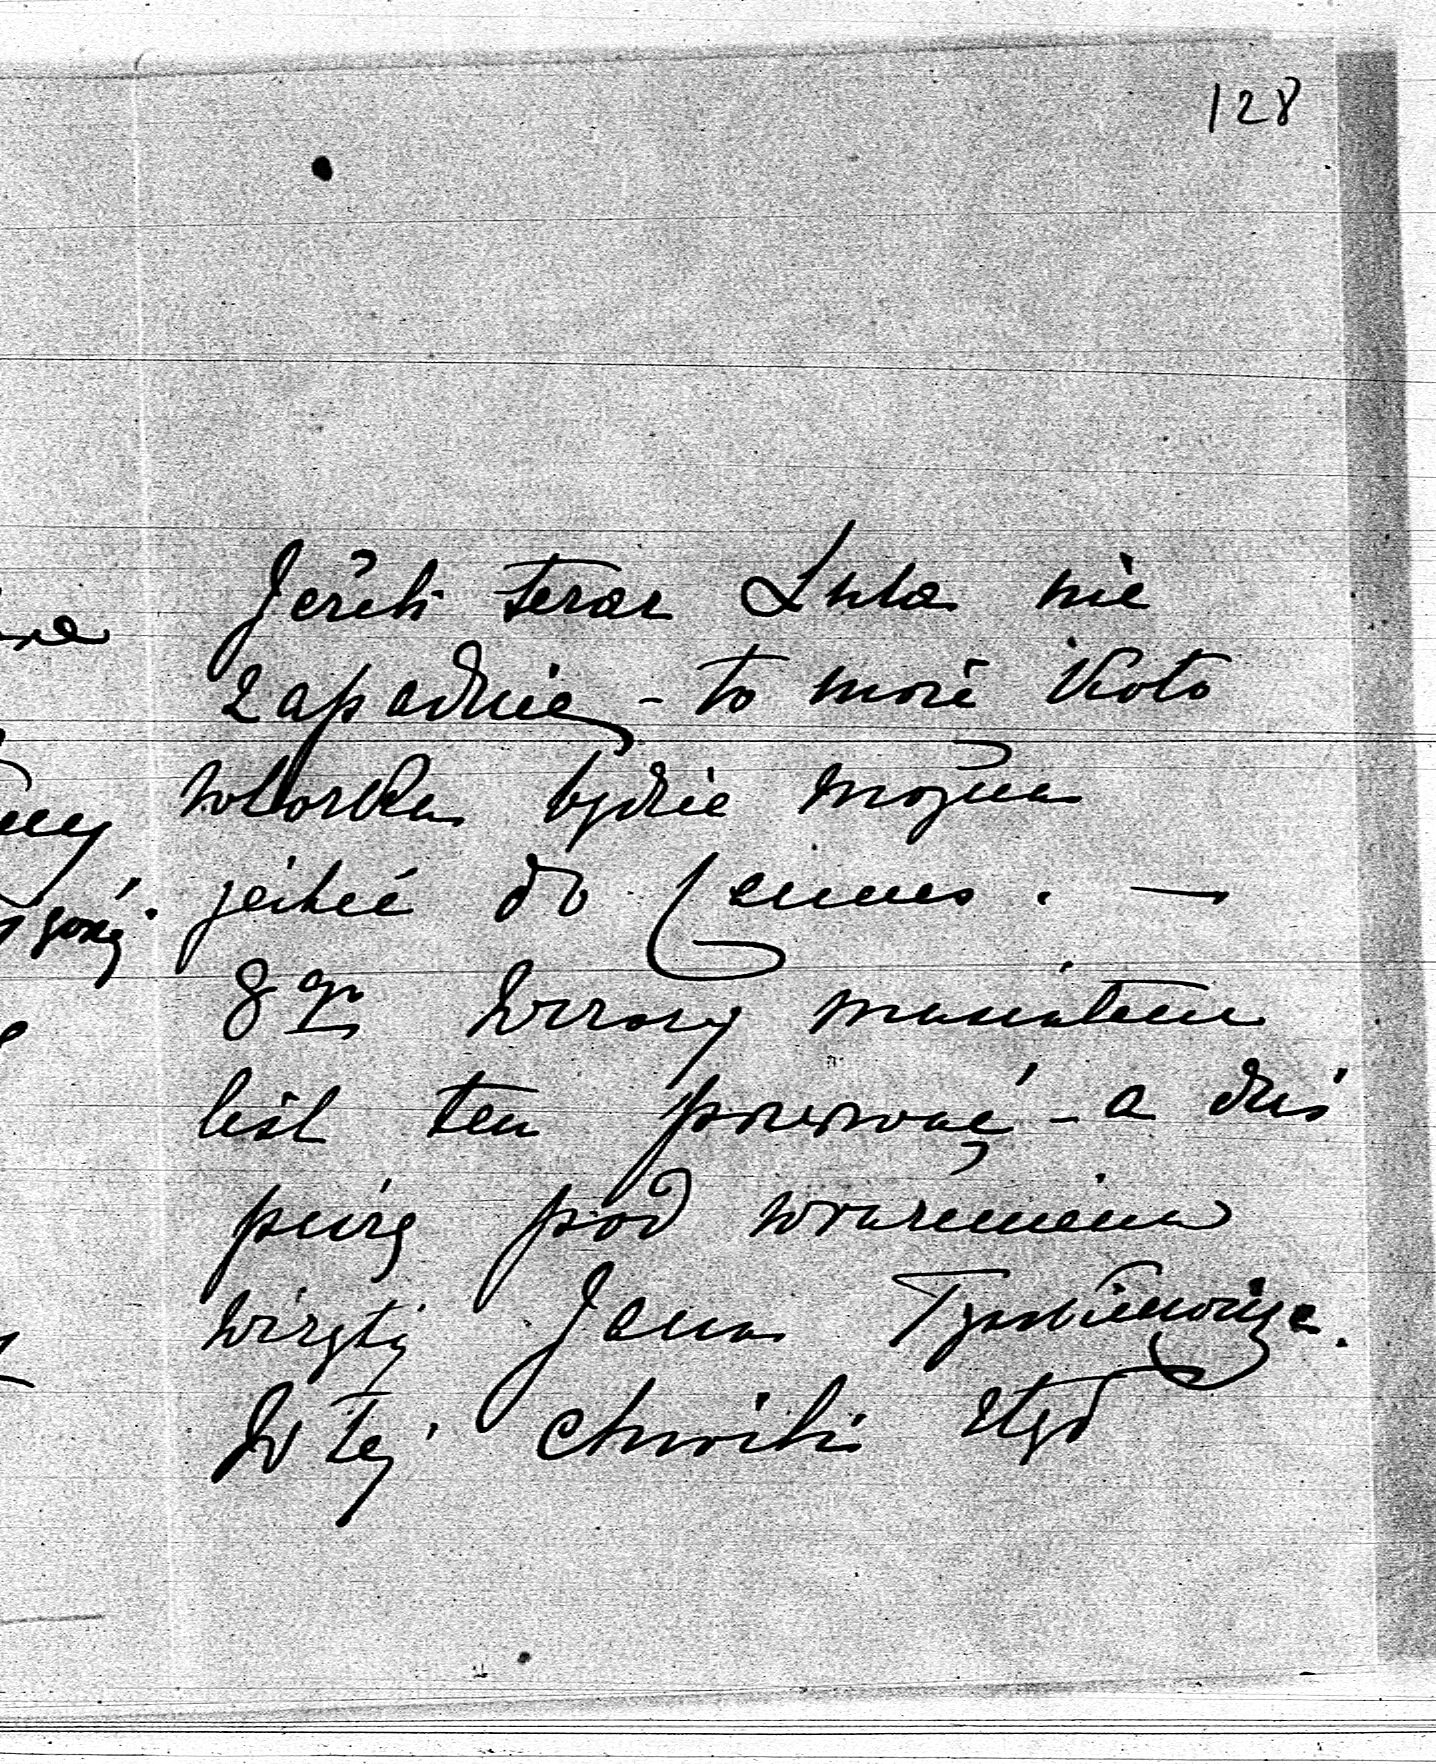 128
Jeżeli teraz Lula nie
zapadnie – to może koło
wtorku będzie można
jechać do Cannes. —
8go wczoraj musiałem
list ten przerwać – a dziś
piszę pod wrażeniem
wizyty Jana Tyszkiewicza.
W tej chwili ztąd